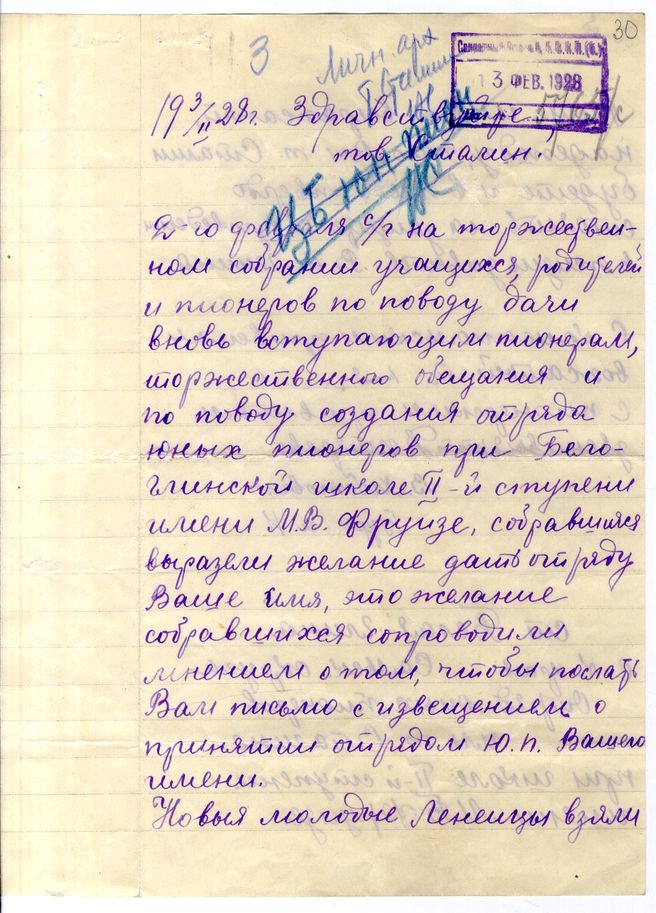 30
3
Личн. арх
13 ФЕВ. 1928
19 3/II 28 г. Здравствуйте
тов. Сталин!
2 го февраля с/г на торжествен-
ном собрании учащихся, родителей
и пионеров по поводу дачи
вновь вступающим пионерам,
торжественного обещания и
по поводу создания отряда
юных пионеров при Бело-
глинской школе II-й ступени
имени М.В. Фрунзе, собравшиеся
выразели желание дать отряду
Ваше имя, это желание
собравшихся сопроводили
мнением о том, чтобы послать
Вам письмо с извещением о
принятии отрядом Ю.п. Вашего
имени.
Новыя молодые Ленецы взяли